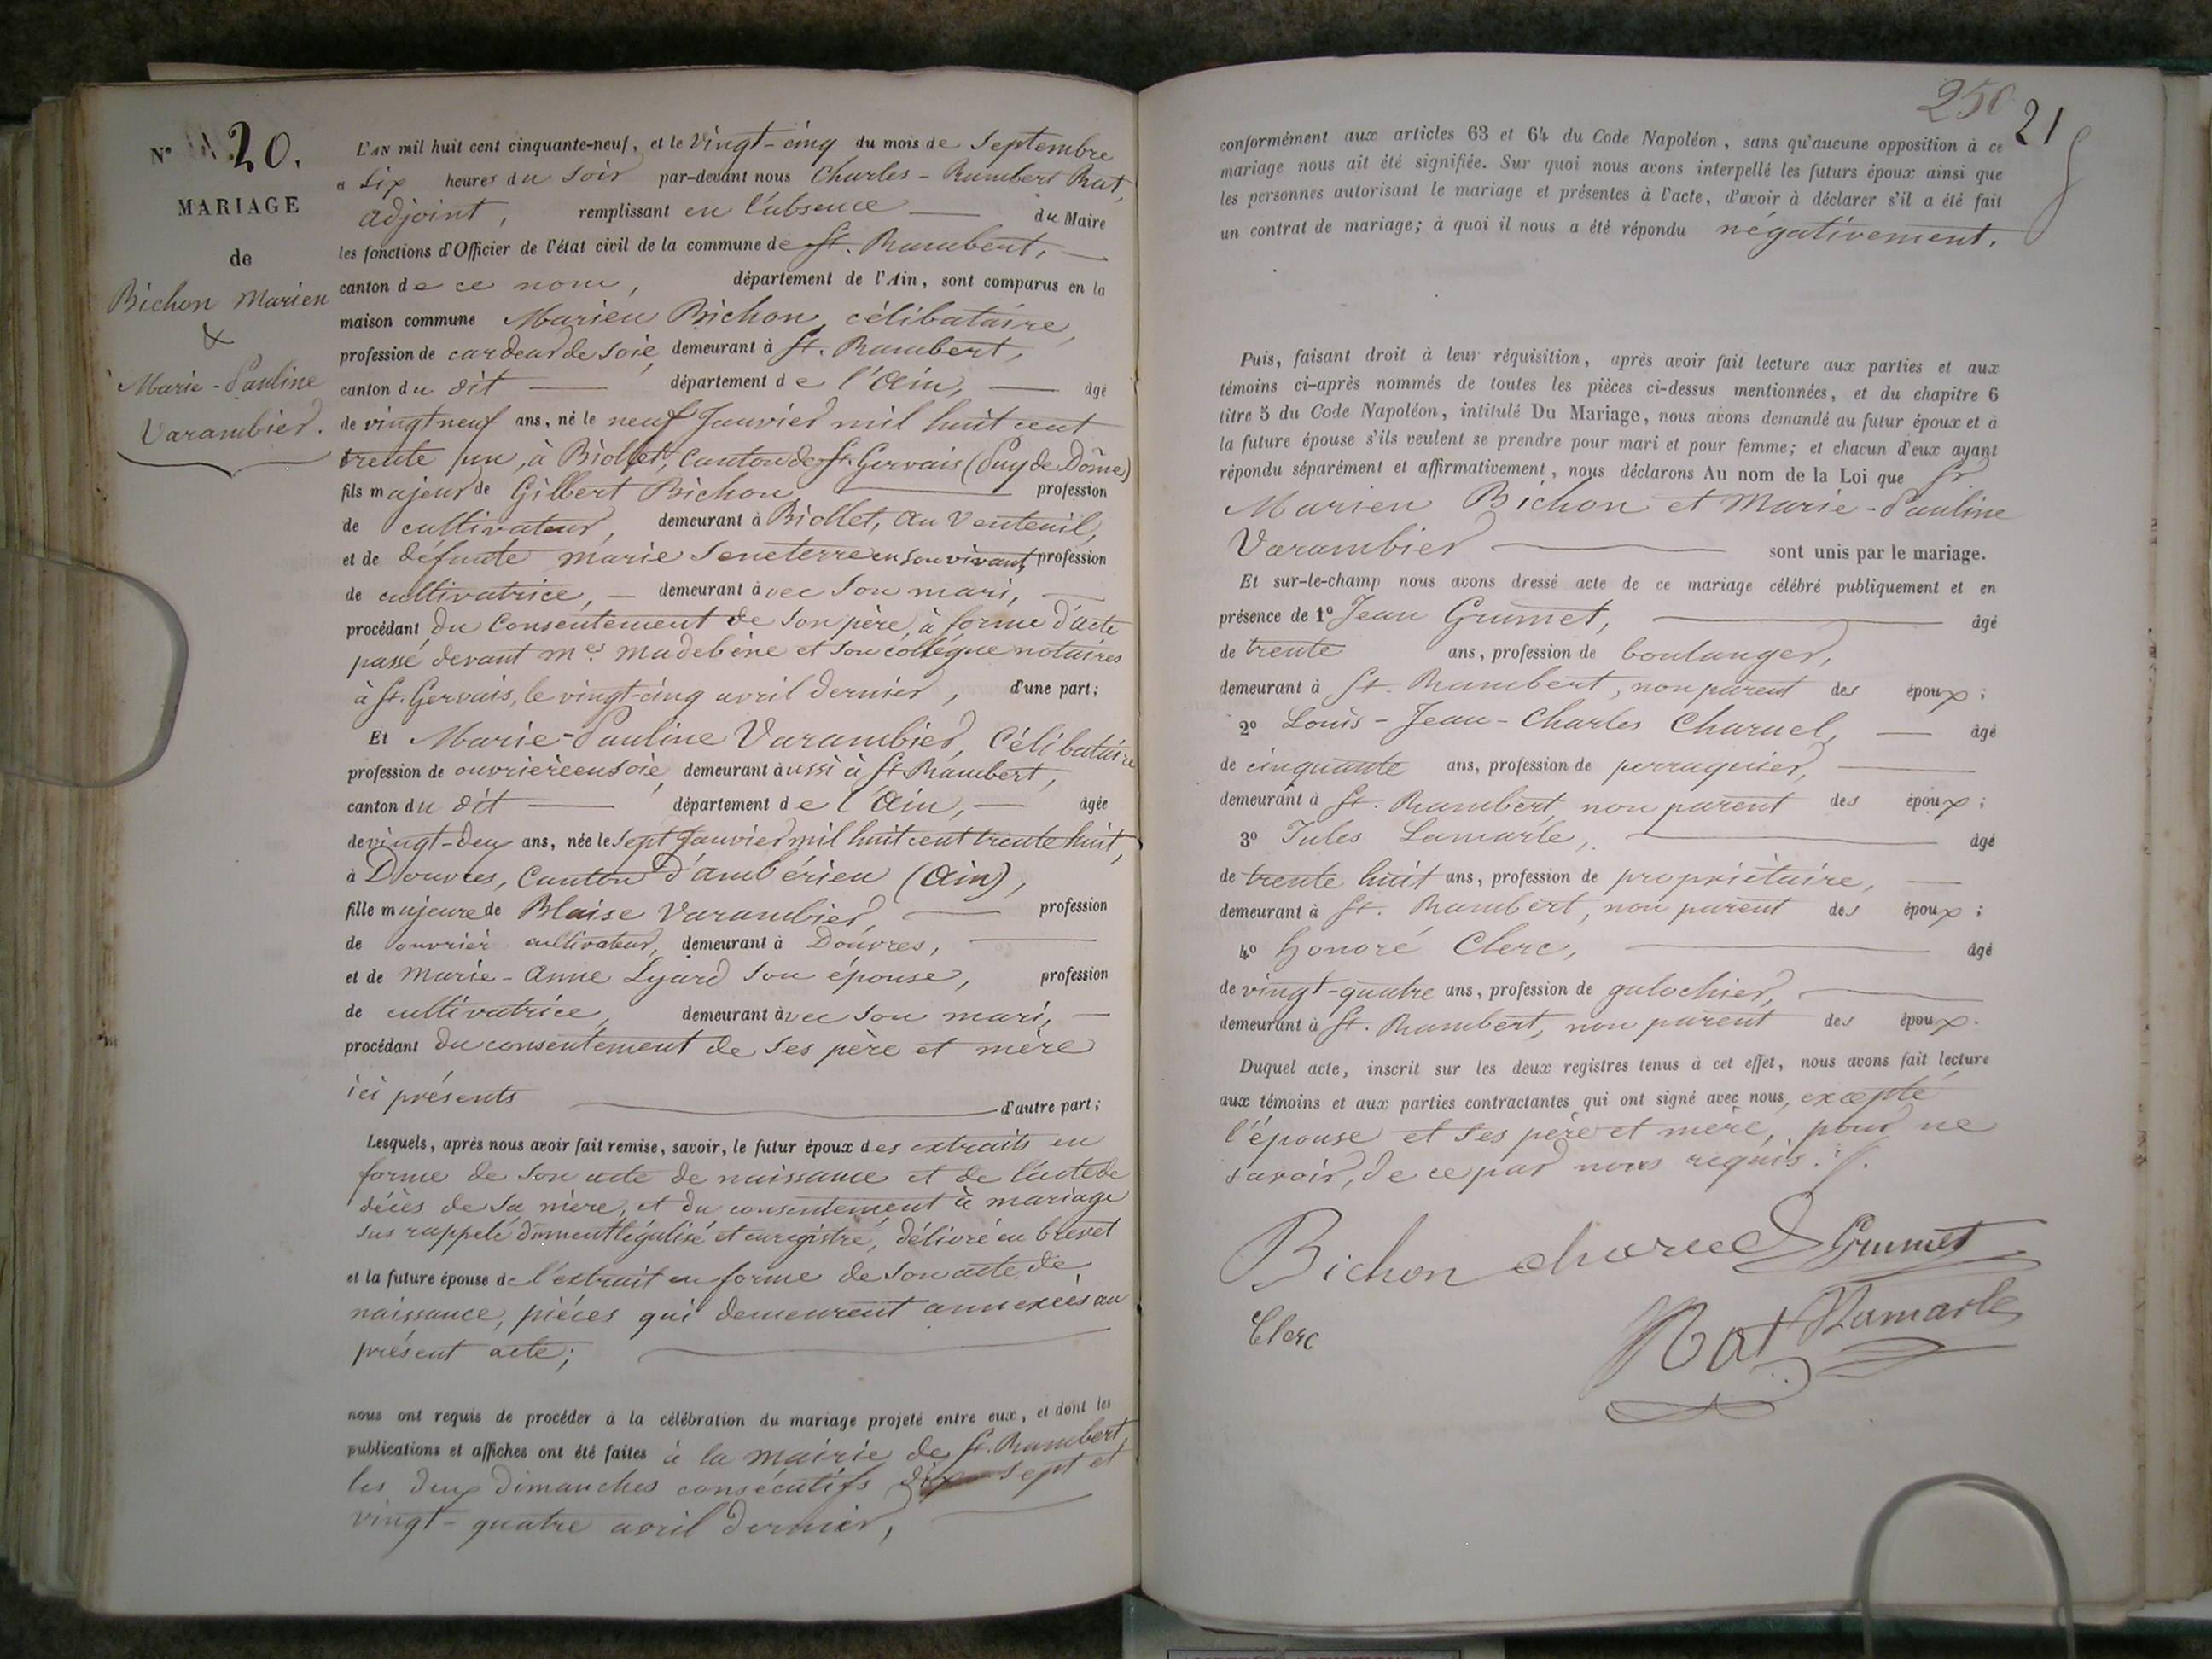 N° 20.
MARIAGE
de
Bichon Marien
&
Marie-Pauline
Varambier.
L'AN mil huit cent cinquante-neuf, et le vingt-cinq du mois de Septembre
à Six heures du Soir par-devant nous Charles-Rambert Rat,
adjoint, remplissant en l'absence du Maire
les fonctions d'Officier de l'état civil de la commune de St. Rambert,
canton de ce nom, département de l'Ain, sont comparus en la
maison commune Marien Bichon, célibataire,
profession de cardeur de soie, demeurant à St. Rambert,
canton du dit département de l'Ain, âgé
de vingt neuf ans, né le neuf Janvier mil huit cent
trente un, à Biollet, Canton de St. Gervais (Puy de Dôme)
fils majeur de Gilbert Bichon profession
de cultivateur, demeurant à Biollet, au Venteuil,
et de défunte Marie Seneterre en son vivant, profession
de cultivatrice, demeurant avec son mari,
procédant du Consentement de son père, à forme d'acte
passé devant Mes. Madebène et son collègue notaires
à St. Gervais, le vingt-cinq avril dernier, d'une part;
Et Marie-Pauline Varambier, Célibataire
profession de ouvrière en soie, demeurant aussi à St Rambert,
canton du dit département de l'Ain, âgée
de vingt-deux ans, née le Sept Janvier mil huit cent trente huit,
à Douvres, Canton d'ambérieu (Ain),
fille majeure de Blaise Varambier, profession
de ouvrier cultivateur, demeurant à Douvres,
et de Marie-Anne Lyard son épouse, profession
de cultivatrice, demeurant avec son mari,
procédant du consentement de ses père et mère
ici présents d'autre part;
Lesquels, après nous avoir fait remise, savoir, le futur époux des extraits en
forme de son acte de naissance et de l'acte de
décès de sa mère, et du consentement à mariage
sus rappelé dûment légalisé et enregistré, délivré en brevet
et la future épouse de l'extrait en forme de son acte de
naissance, pièces qui demeurent annexées au
présent acte;
nous ont requis de procéder à la célébration du mariage projeté entre eux, et dont les
publications et affiches ont été faites à la mairie de St. Rambert,
les deux dimanches consécutifs dix sept et
vingt-quatre avril dernier,
250
21
conformément aux articles 63 et 64 du Code Napoléon, sans qu'aucune opposition à ce
mariage nous ait été signifiée. Sur quoi nous avons interpellé les futurs époux ainsi que
les personnes autorisant le mariage et présentes à l'acte, d'avoir à déclarer s'il a été fait
un contrat de mariage; à quoi il nous a été répondu négativement.
Puis, faisant droit à leur réquisition, après avoir fait lecture aux parties et aux
témoins ci-après nommés de toutes les pièces ci-dessus mentionnées, et du chapitre 6
titre 5 du Code Napoléon, intitulé Du Mariage, nous avons demandé au futur époux et à
la future épouse s'ils veulent se prendre pour mari et pour femme; et chacun d'eux ayant
répondu séparément et affirmativement, nous déclarons Au nom de la Loi que Sr.
Marien Bichon et Marie-Pauline
Varambier sont unis par le mariage.
Et sur-le-champ nous avons dressé acte de ce mariage célébré publiquement et en
présence de 1° Jean Grumet, âgé
de trente ans, profession de boulanger,
demeurant à St. Rambert, non parent des époux;
2° Louis-Jean-Charles Charuel, âgé
de cinquante ans, profession de perruquier,
demeurant à St. Rambert, non parent des époux;
3° Jules Lamarle, âgé
de trente huit ans, profession de propriétaire,
demeurant à St. Rambert, non parent des époux;
4° honoré Clerc, âgé
de vingt-quatre ans, profession de galochier,
demeurant à St. Rambert, non parent des époux.
Duquel acte, inscrit sur les deux registres tenus à cet effet, nous avons fait lecture
aux témoins et aux parties contractantes qui ont signé avec nous, excepté
l'épouse et ses père et mère, pour ne
savoir, de ce par nous requis.
Bichon Grumet
Clerc Rat Lamarle